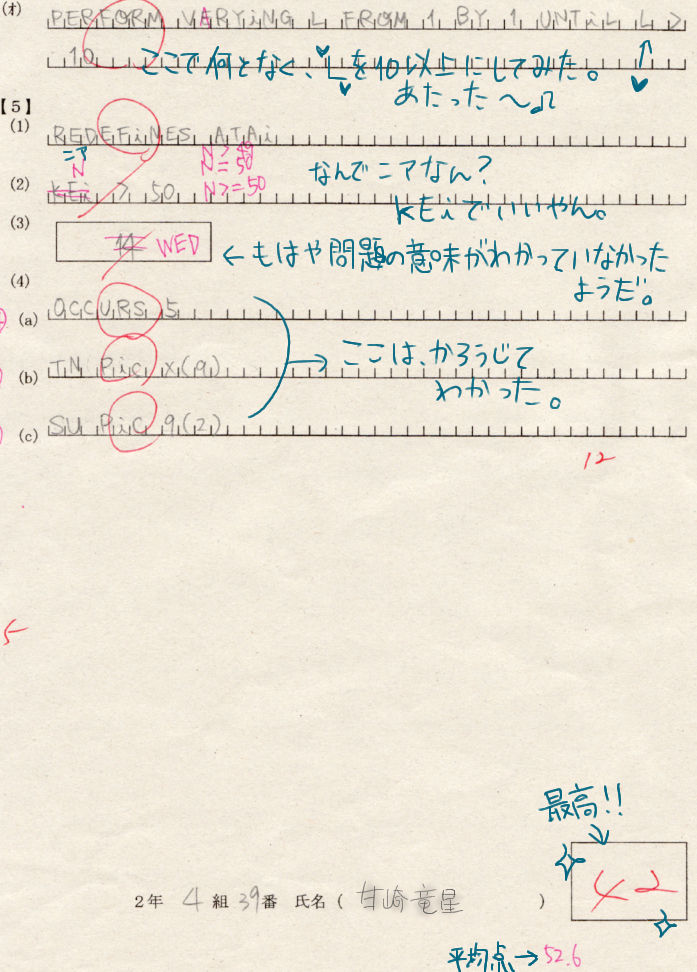 (オ) PERFORM VARYiNG L FROM 1 BY 1 UNTiL L >
10
ここで何となく、Lを10以上にしてみた。
あたった〜♫
【5】
(1) REDEFiNES ATAi
ニア
N
N > 49
N = 50
(2) KEi > 50 N >= 50
なんでニアなん?
KEiでいいやん。
(3) 14 WED ←もはや問題の意味がわかっていなかった
ようだ。
(4)
(a) OCCURS 5
→ここは、かろうじて
(b) TN PiC X(9)
わかった。
(c) SU PiC 9(2)
12
5
最高!!
42
2年 4 組 39番 氏名 ( 甘崎竜星 )
平均点→52.6